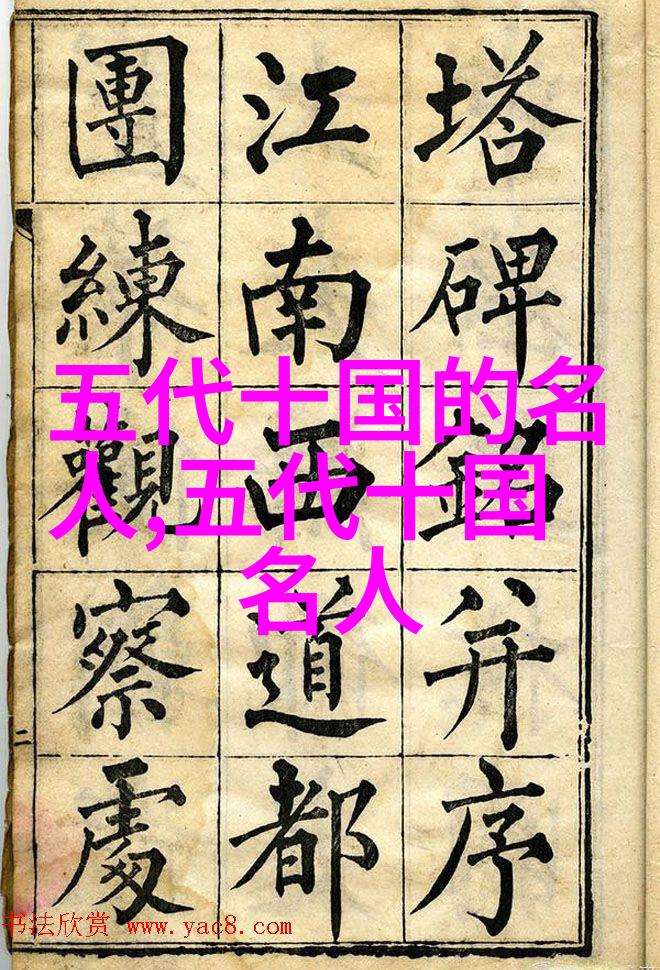 塔碑銘并序
江南西道都
團練觀察處
二
五代十国的名
人,五代十国
名人
书法欣赏 www.yac8.com